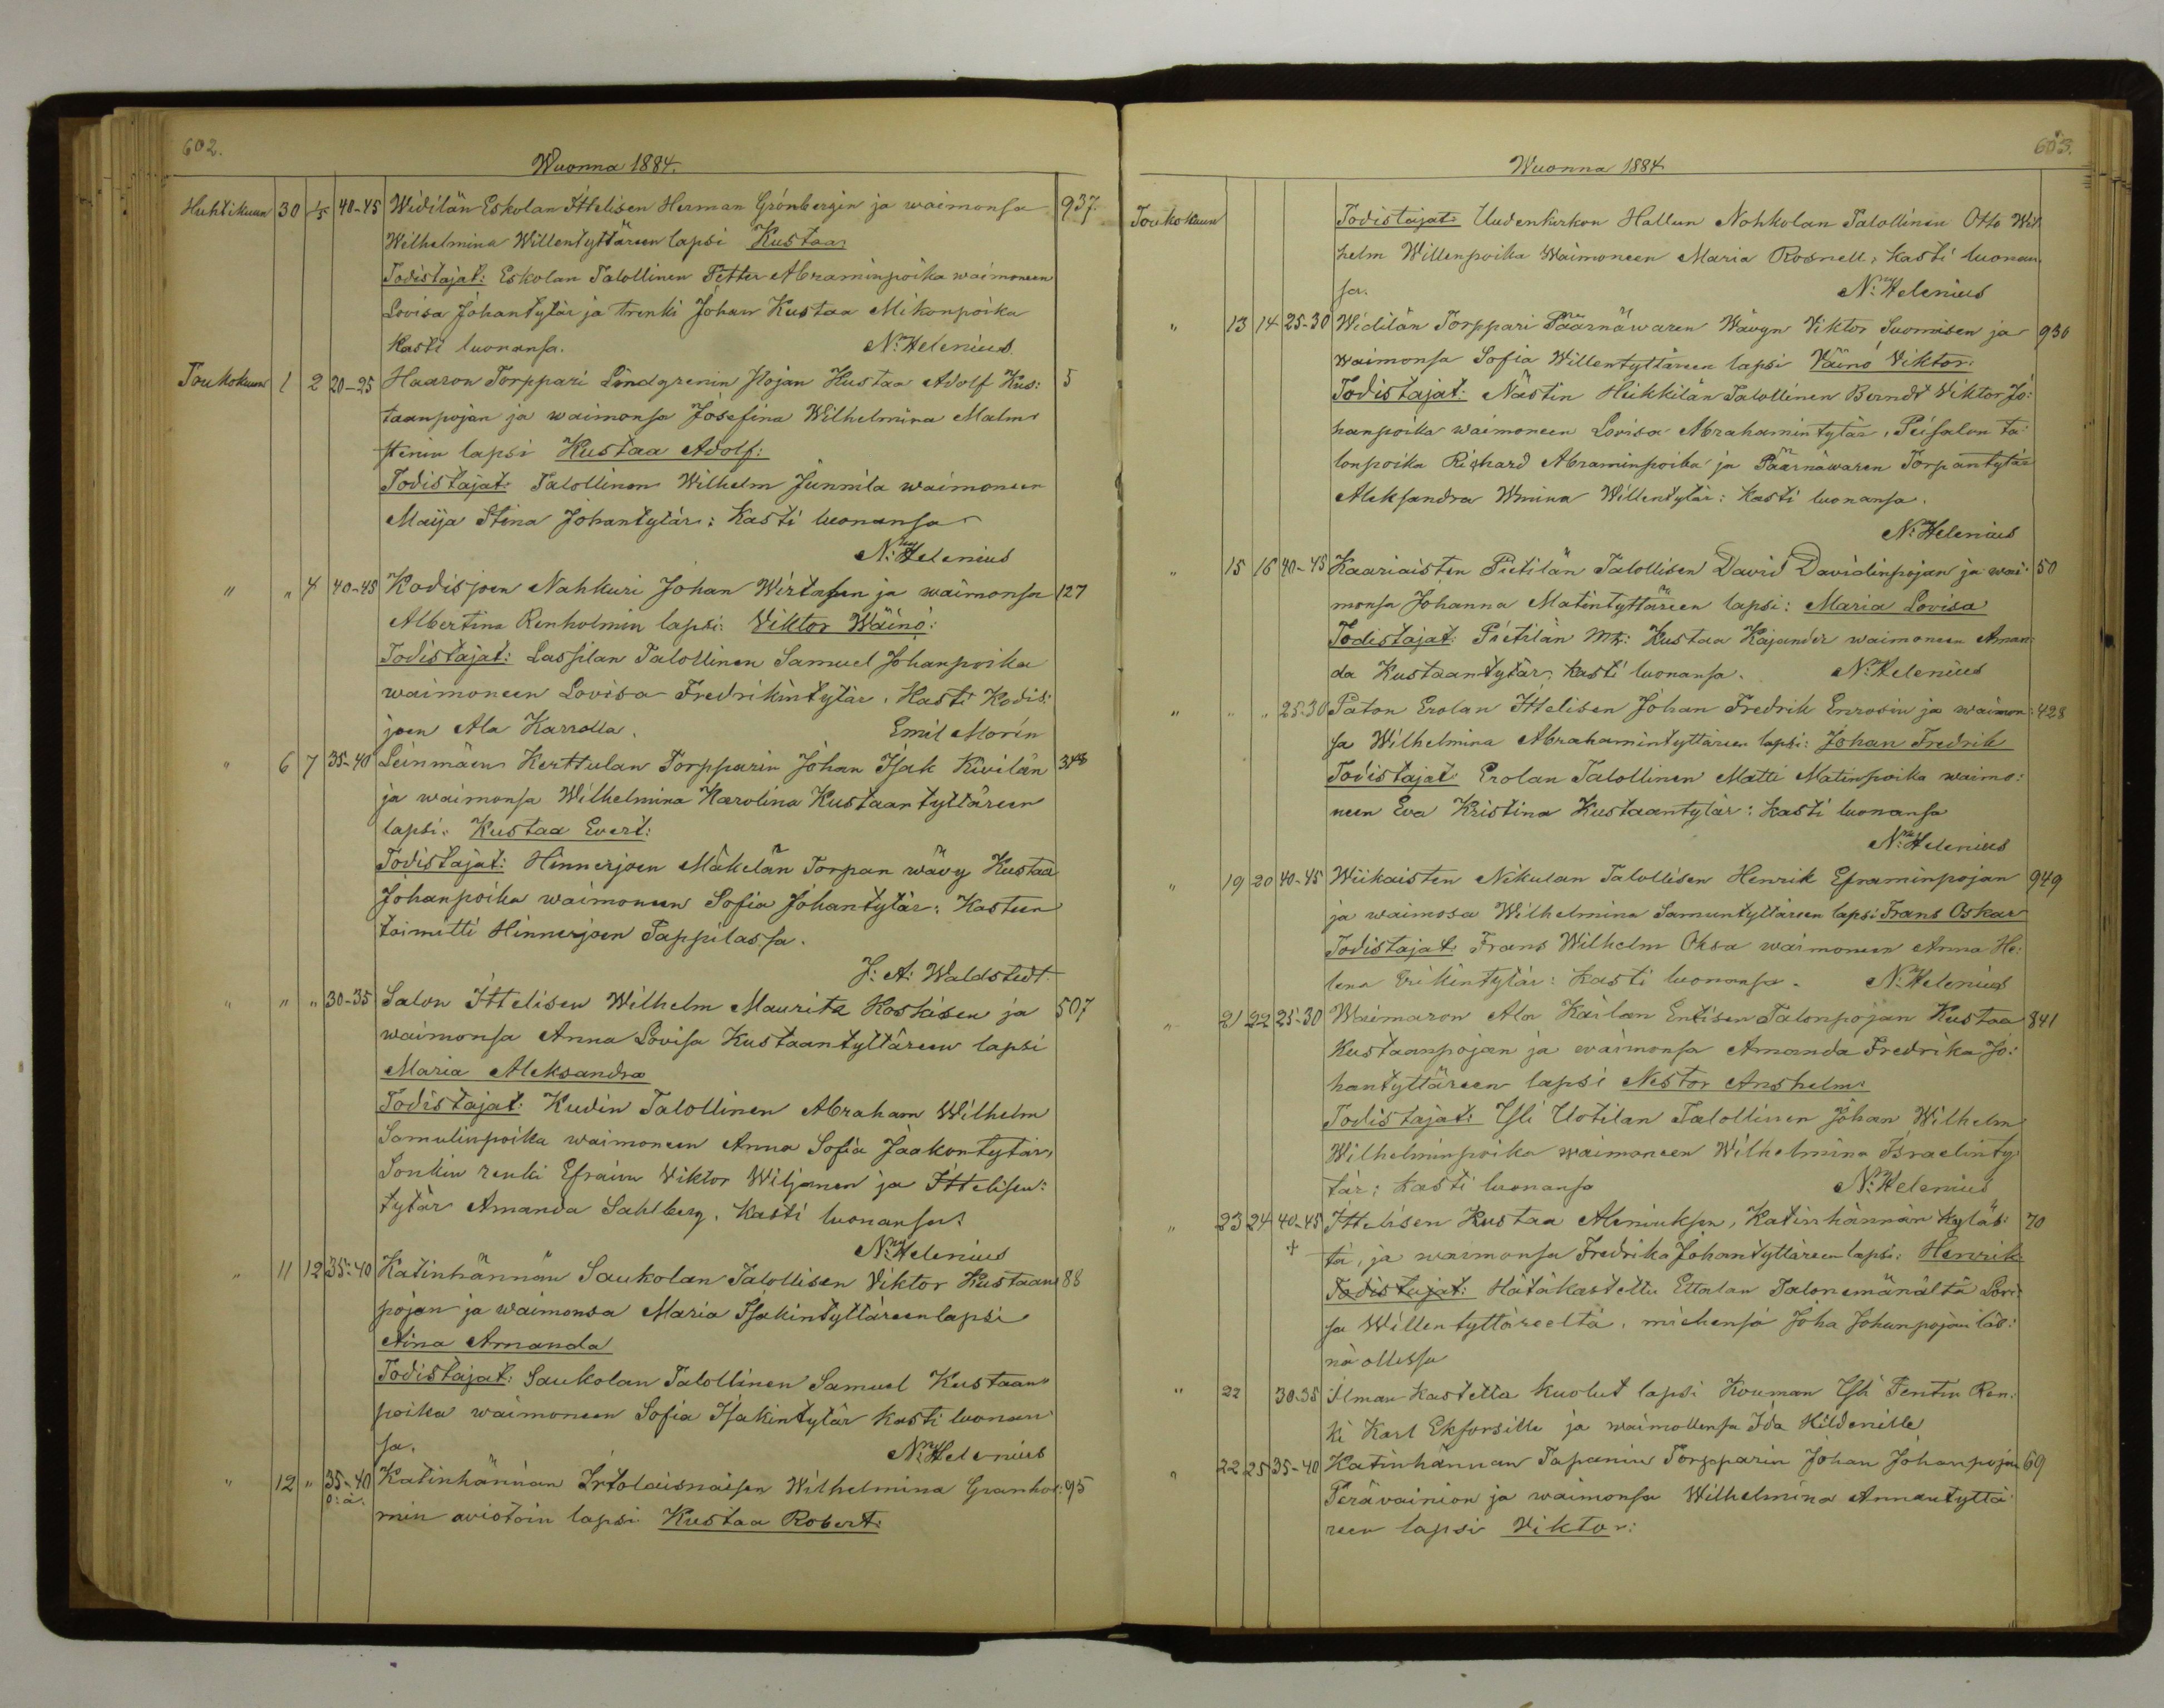 602.
Wuonna 1884.
Huhtikuun 30 1/5 40-45 Widilän Eskolan Ittelisen Herman Grönbergin ja waimonsa 937.
Wilhelmina Willentyttäreen lapsi Kustaa
Todistajat: Eskolan Talollinen Petter Abraminpoika waimoneen
Lovisa Johantytär ja trenki Johan Kustaa Mikonpoika
Kasti luonansa. N: Helenius.
Toukokuun 1 2 20-25 Haaron Torppari Lindgrenin Pojan Kustaa Adolf Kus: 5
taanpojan ja waimonsa Josefina Wilhelmina Malm
stenin lapsi Kustaa Adolf:
Todistajat: Talollinen Wilhelm Junnila waimoneen
Maija Stina Johantytär: Kasti luonansa
N: Helenius
" " 4 40-45 Kodisjoen Nahkuri Johan Wirtasen ja waimonsa 127
Albertina Renholmin lapsi: Viktor Wäinö:
Todistajat: Lassilan Talollinen Samuel Johanpoika
waimoneen Lovisa Fredrikintytär. Kasti Kodis:
joen Ala Karrolla. Emil Morin
" 6 7 35-40 Leinmäen Kerttulan Torpparin Johan Isak Kivilän 348
ja waimonsa Wilhelmina Karolina Kustaantyttäreen
lapsi: Kustaa Evert:
Todistajat: Hinnerjoen Mäkelän Torpan wävy Kustaa
Johanpoika waimoneen Sofia Johantytär: Kasteen
toimitti Hinnerjoen Pappilassa.
J: A: Waldstedt
" " " 30-35 Salon Ittelisen Wilhelm Maurits Koskisen ja 507
waimonsa Anna Lovisa Kustaantyttäreen lapsi
Maria Aleksandra
Todistajat: Kudin Talollinen Abraham Wilhelm
Samulinpoika waimoneen Anna Sofia Jaakontytär,
Sonkin renki Efraim Viktor Wiljanen ja Ittelisen:
tytär Amanda Sahlberg. Kasti luonansa:
N: Helenius
" 11 12 35-40 Katinhännän Saukolan Talollisen Viktor Kustaan 88
pojan ja waimonsa Maria Isakintyttäreen lapsi
Aina Amanda
Todistajat: Saukolan Talollinen Samuel Kustaan"
poika waimoneen Sofia Isakintytär kasti luonan
sa. N: Helenius
" 12 " 35-40 Katinhännän Irtolaisnaisen Wilhelmina Granhol: 95
o: ä. min aviotoin lapsi Kustaa Robert:
603.
Wuonna 1884
Toukokuun Todistajat: Uudenkirkon Hallun Nohkolan Talollinen Otto Wil
helm Willenpoika Waimoneen Maria Rosnell, Kasti luonan
sa. N: Helenius
" 13 14 25-30 Widilän Torppari Päärnäwaren Wävyn Viktor Suomisen ja 930
waimonsa Sofia Willentyttäreen lapsi Väinö Viktor:
Todistajat: Nästin Heikkilän Talollinen Berndt Viktor Jo:
hanpoika waimoneen Lovisa Abrahamintytär, Peisalon ta:
lonpoika Richard Abraminpoika ja Päärnäwaren Torpantytär
Aleksandra Wmina Willentytär: Kasti luonansa.
N: Helenius
" 15 16 40-45 Kaariaisten Pietilän Talollisen David Davidinpojan ja wai: 50
monsa Johanna Matintyttäreen lapsi: Maria Lovisa
Todistajat: Pietilän Mk: Kustaa Kajander waimoneen Aman:
da Kustaantytär; kasti luonansa. N: Helenius
" " " 25-30 Paton Erolan Ittelisen Johan Fredrik Enrosin ja waimon: 428
sa Wilhelmina Abrahamintyttäreen lapsi: Johan Fredrik
Todistajat Erolan Talollinen Matti Matinpoika waimo:
neen Eva Kristina Kustaantytär: kasti luonansa
N: Helenius
" 19 20 40-45 Wiikaisten Nikulan Talollisen Henrik Eframinpojan 949
ja waimosa Wilhelmina Samuntyttäreen lapsi Frans Oskar
Todistajat: Frans Wilhelm Oksa waimoneen Anna He:
lena Erikintytär: kasti luonansa. N: Helenius
" 21 22 25-30 Waimaron Ala Käilan Entisen Talonpojan Kustaa 841
Kustaanpojan ja waimonsa Amanda Fredrika Jo:
hantyttäreen lapsi Nestor Anshelm:
Todistajat: Yli Uotilan Talollinen Johan Wilhelm
Wilhelminpoika waimoneen Wilhelmina Israelinty
tär; kasti luonansa N: Helenius
" 23 24 40-45 Ittelisen Kustaa Aleniuksen, Katinhännän Kyläs: 70
+ tä, ja waimonsa Fredrika Johantyttäreen lapsi: Henrik
Todistajat: Hätäkastettu Ettalan Talonemänältä Lovi:
sa Willentyttäreeltä, miehensä Joha Johanpojan läs:
nä ollessa
" 22 30-35 Ilman kastetta kuolut lapsi Kouman Yli Tentin Ren:
ki Karl Ekforsille ja waimollensa Ida Hildenille
" 22 25 35-40 Katinhännän Tapanin Torpparin Johan Johanpojan 69
Perävainion ja waimonsa Wilhelmina Annantyttä
reen lapsi Viktor: